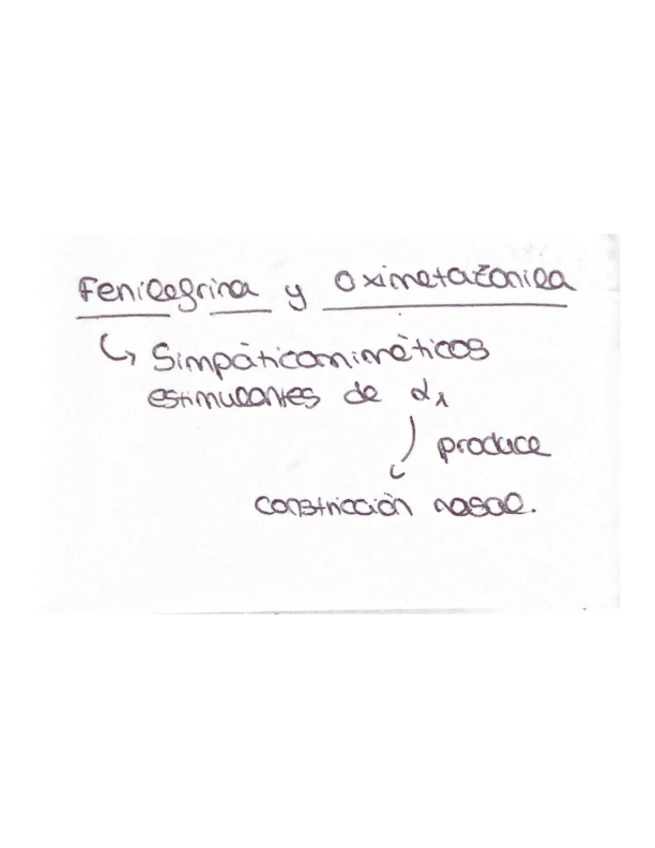 Fenilefrina y Oximetazonila
↳ Simpáticomiméticos
estimulantes de α1
produce
constricción nasal.